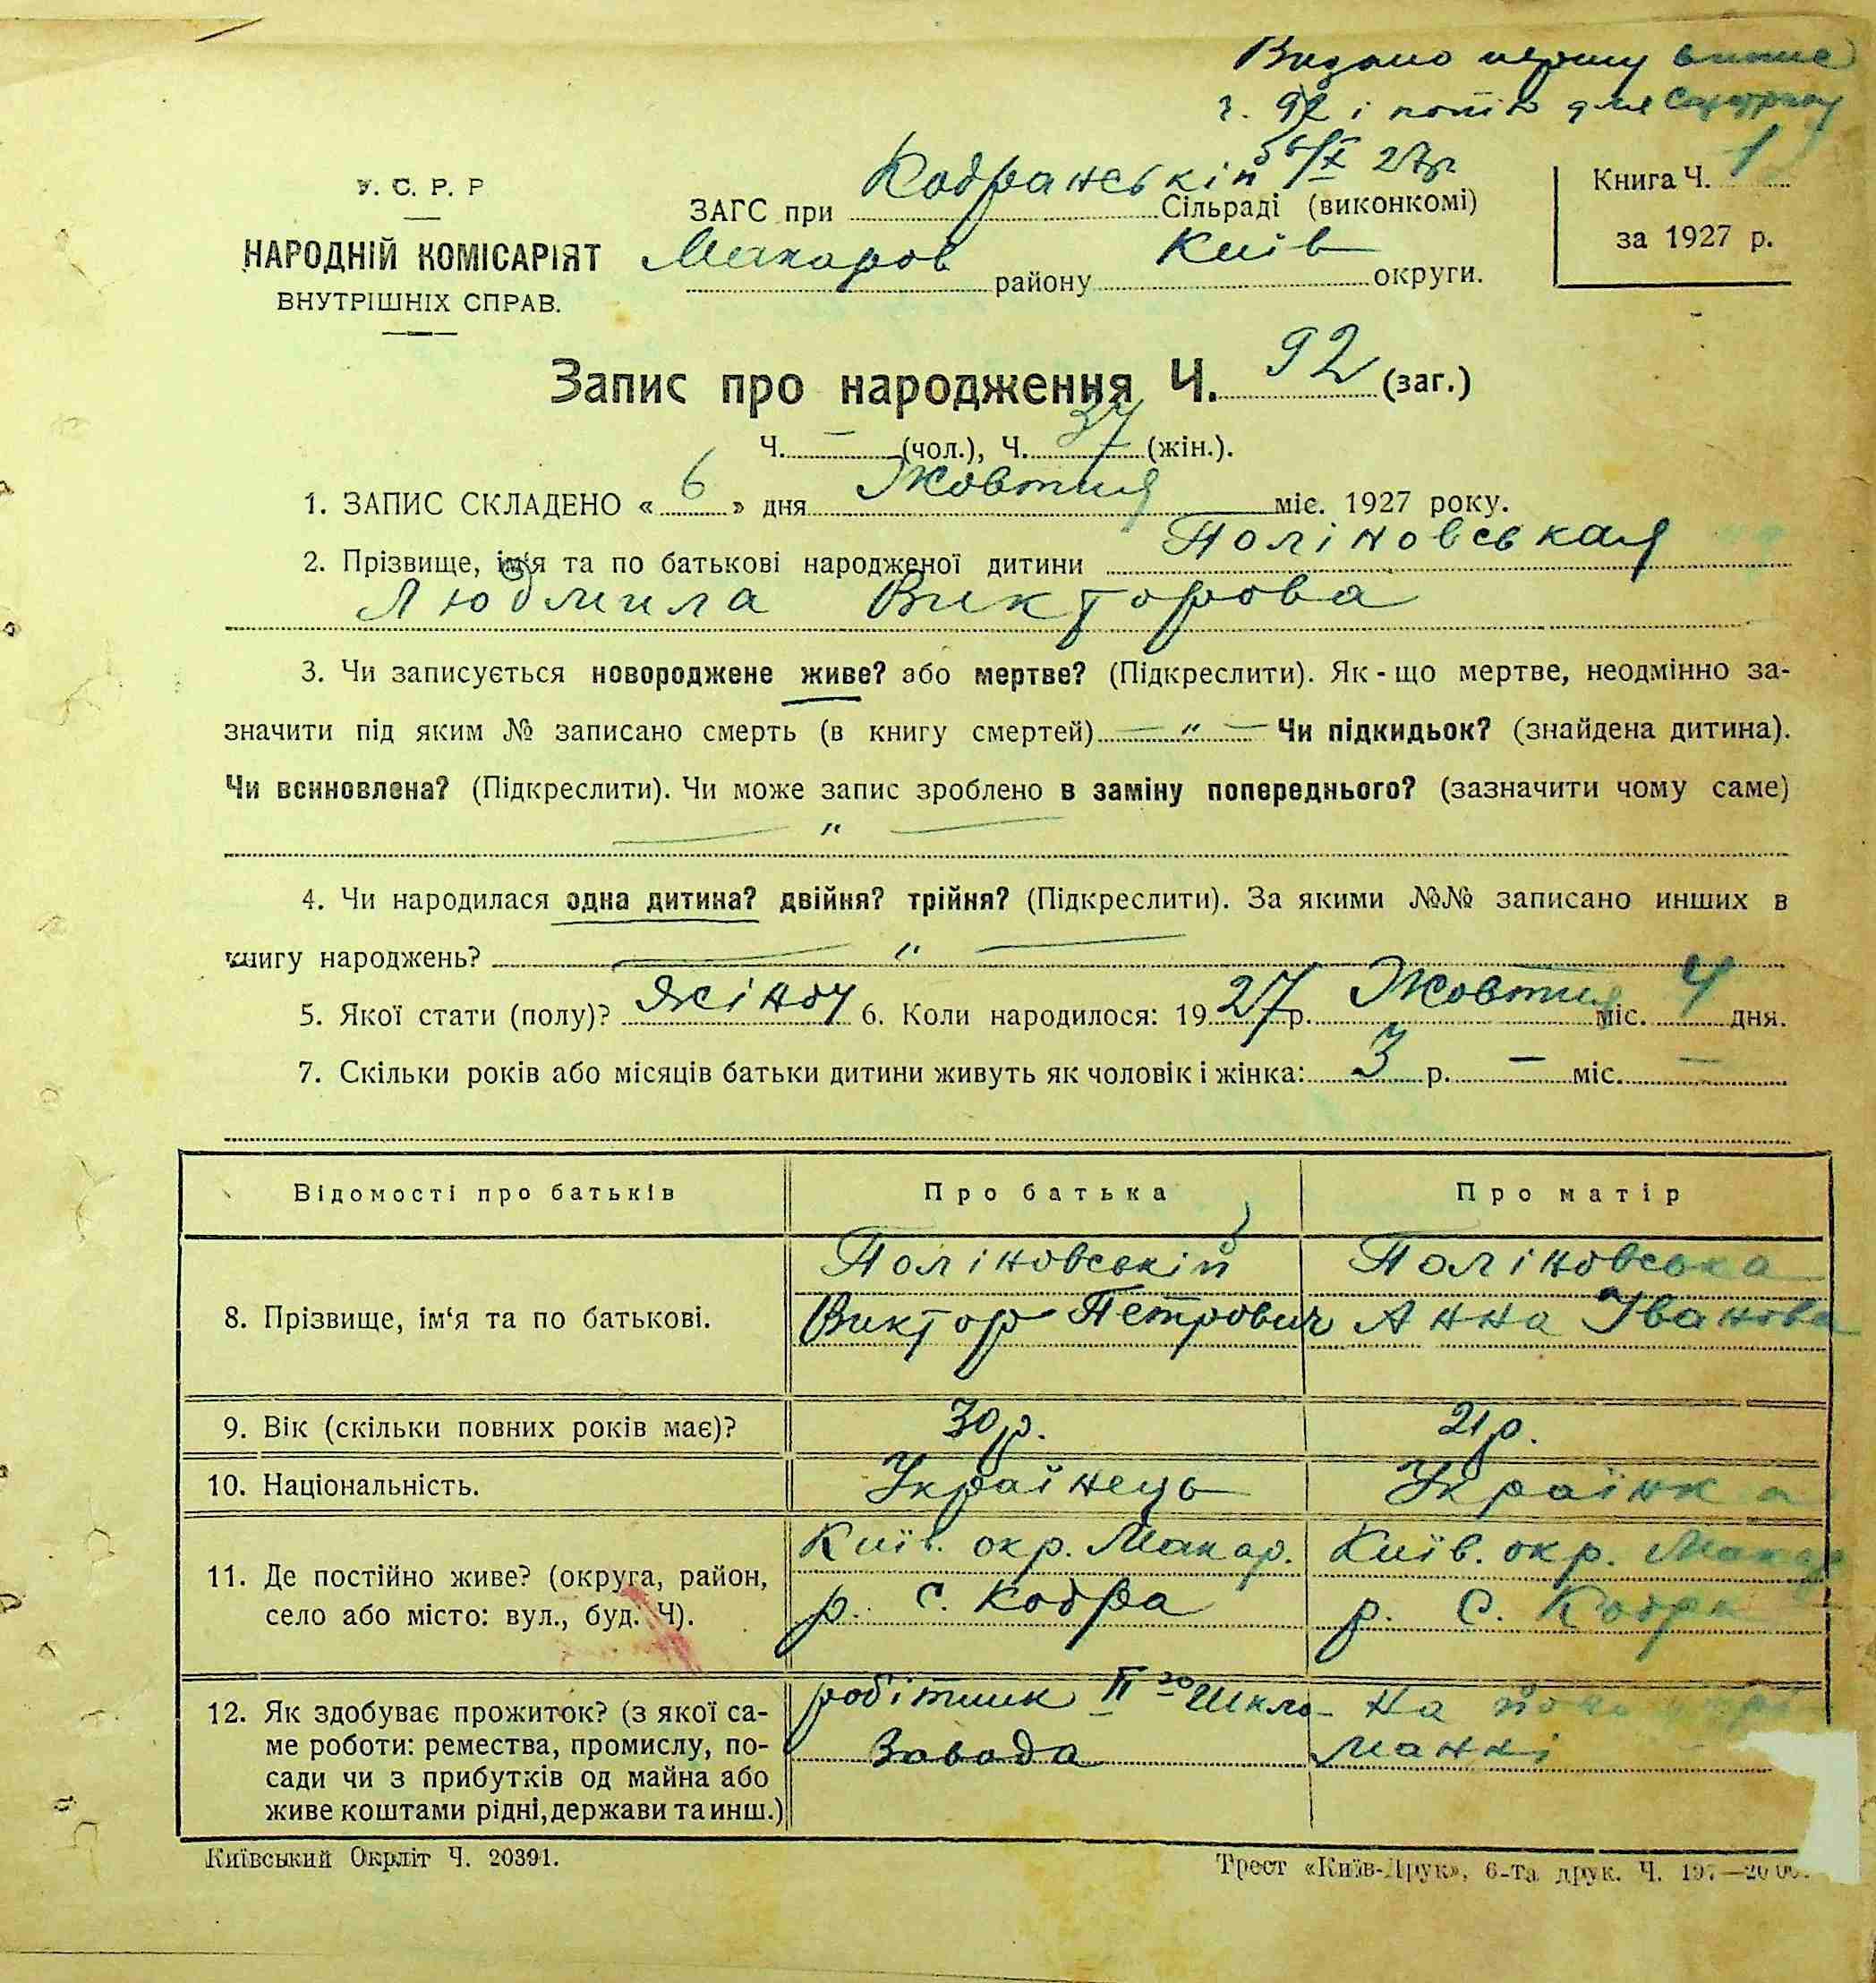 Видано першу випис
з. 92 і копію для
6/X 27р
У. С. Р. Р
НАРОДНІЙ КОМІСАРІЯТ
ВНУТРІШНІХ СПРАВ.
ЗАГС при Кодранській Сільраді (виконкомі)
Макаров району Київ округи.
Книга Ч. 1
за 1927 р.
Запис про народження Ч. 92 (заг.)
Ч. — (чол.), Ч. 37 (жін.).
1. ЗАПИС СКЛАДЕНО « 6 » дня Жовтня міс. 1927 року.
2. Прізвище, ім'я та по батькові народженої дитини Поліновськая
Людмила Викторова
3. Чи записується новороджене живе? або мертве? (Підкреслити). Як-що мертве, неодмінно за-
значити під яким № записано смерть (в книгу смертей) — „ — Чи підкидьок? (знайдена дитина).
Чи всиновлена? (Підкреслити). Чи може запис зроблено в заміну попереднього? (зазначити чому саме)
— „ —
4. Чи народилася одна дитина? двійня? трійня? (Підкреслити). За якими №№ записано инших в
книгу народжень? — „ —
5. Якої стати (полу)? Жіночу 6. Коли народилося: 1927 р. Жовтня міс. 4 дня.
7. Скільки років або місяців батьки дитини живуть як чоловік і жінка: 3 р. — міс. —
Відомості про батьків Про батька Про матір
8. Прізвище, ім'я та по батькові. Поліновській Поліновська
Виктор Петрович Анна Іванова
9. Вік (скільки повних років має)? 30 р. 21 р.
10. Національність. Українець Українка
11. Де постійно живе? (округа, район, Київ. окр. Макар. Київ. окр. Макар
село або місто: вул., буд. Ч). р. с. Кодра р. с. Кодра
12. Як здобуває прожиток? (з якої са- робітник ІІ го Шкло- На його утри
ме роботи: ремества, промислу, по- Завода манні
сади чи з прибутків од майна або
живе коштами рідні, держави та инш.)
Київський Окрліт Ч. 20391.
Трест «Київ-Друк», 6-та друк. Ч.